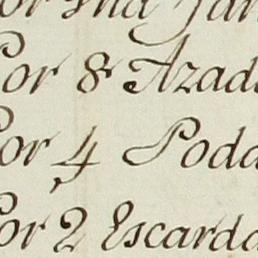 Por 8 Azad
Por 4 Poda
Por 2 Escarda